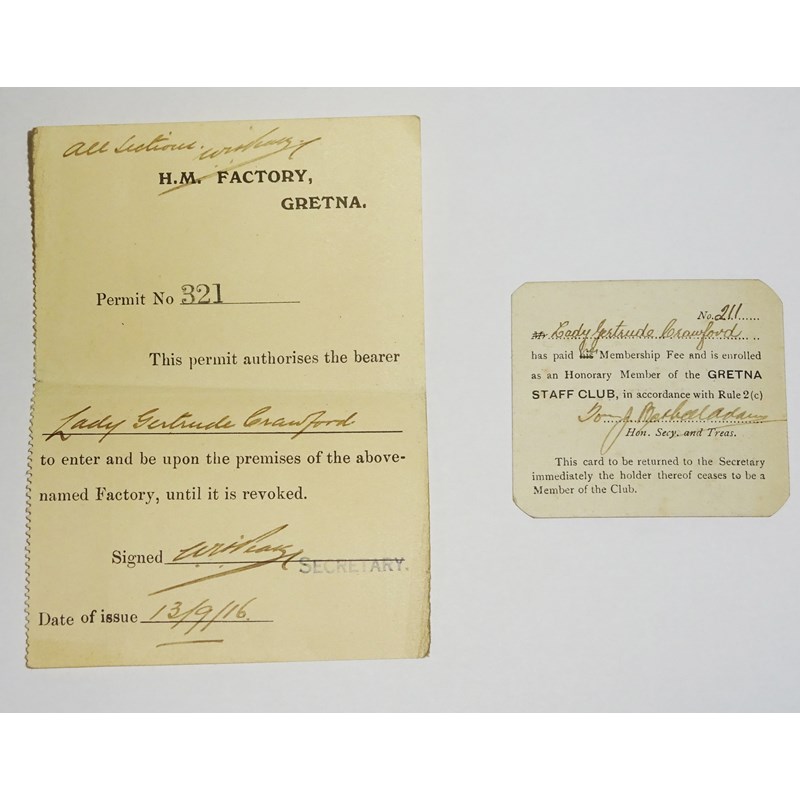 All Sections.
H.M. FACTORY,
GRETNA.
Permit No 321
This permit authorises the bearer
Lady Gertrude Crawford
to enter and be upon the premises of the above-
named Factory, until it is revoked.
Signed
SECRETARY.
Date of issue 13/9/16.
No. 211
Mr Lady Gertrude Crawford
has paid his Membership Fee and is enrolled
as an Honorary Member of the GRETNA
STAFF CLUB, in accordance with Rule 2(c)
Hon. Secy. and Treas.
This card to be returned to the Secretary
immediately the holder thereof ceases to be a
Member of the Club.